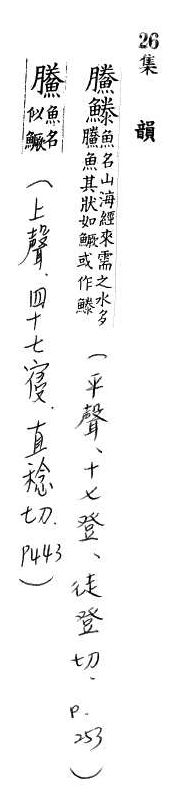 26集 韻
鰧魚名山海經來需之水多
鰧魚其狀如鱖或作
(平聲、十七登、徒登切. P. 253)
鰧魚名
似鱖
(上聲.四十七寑.直稔切. P443)